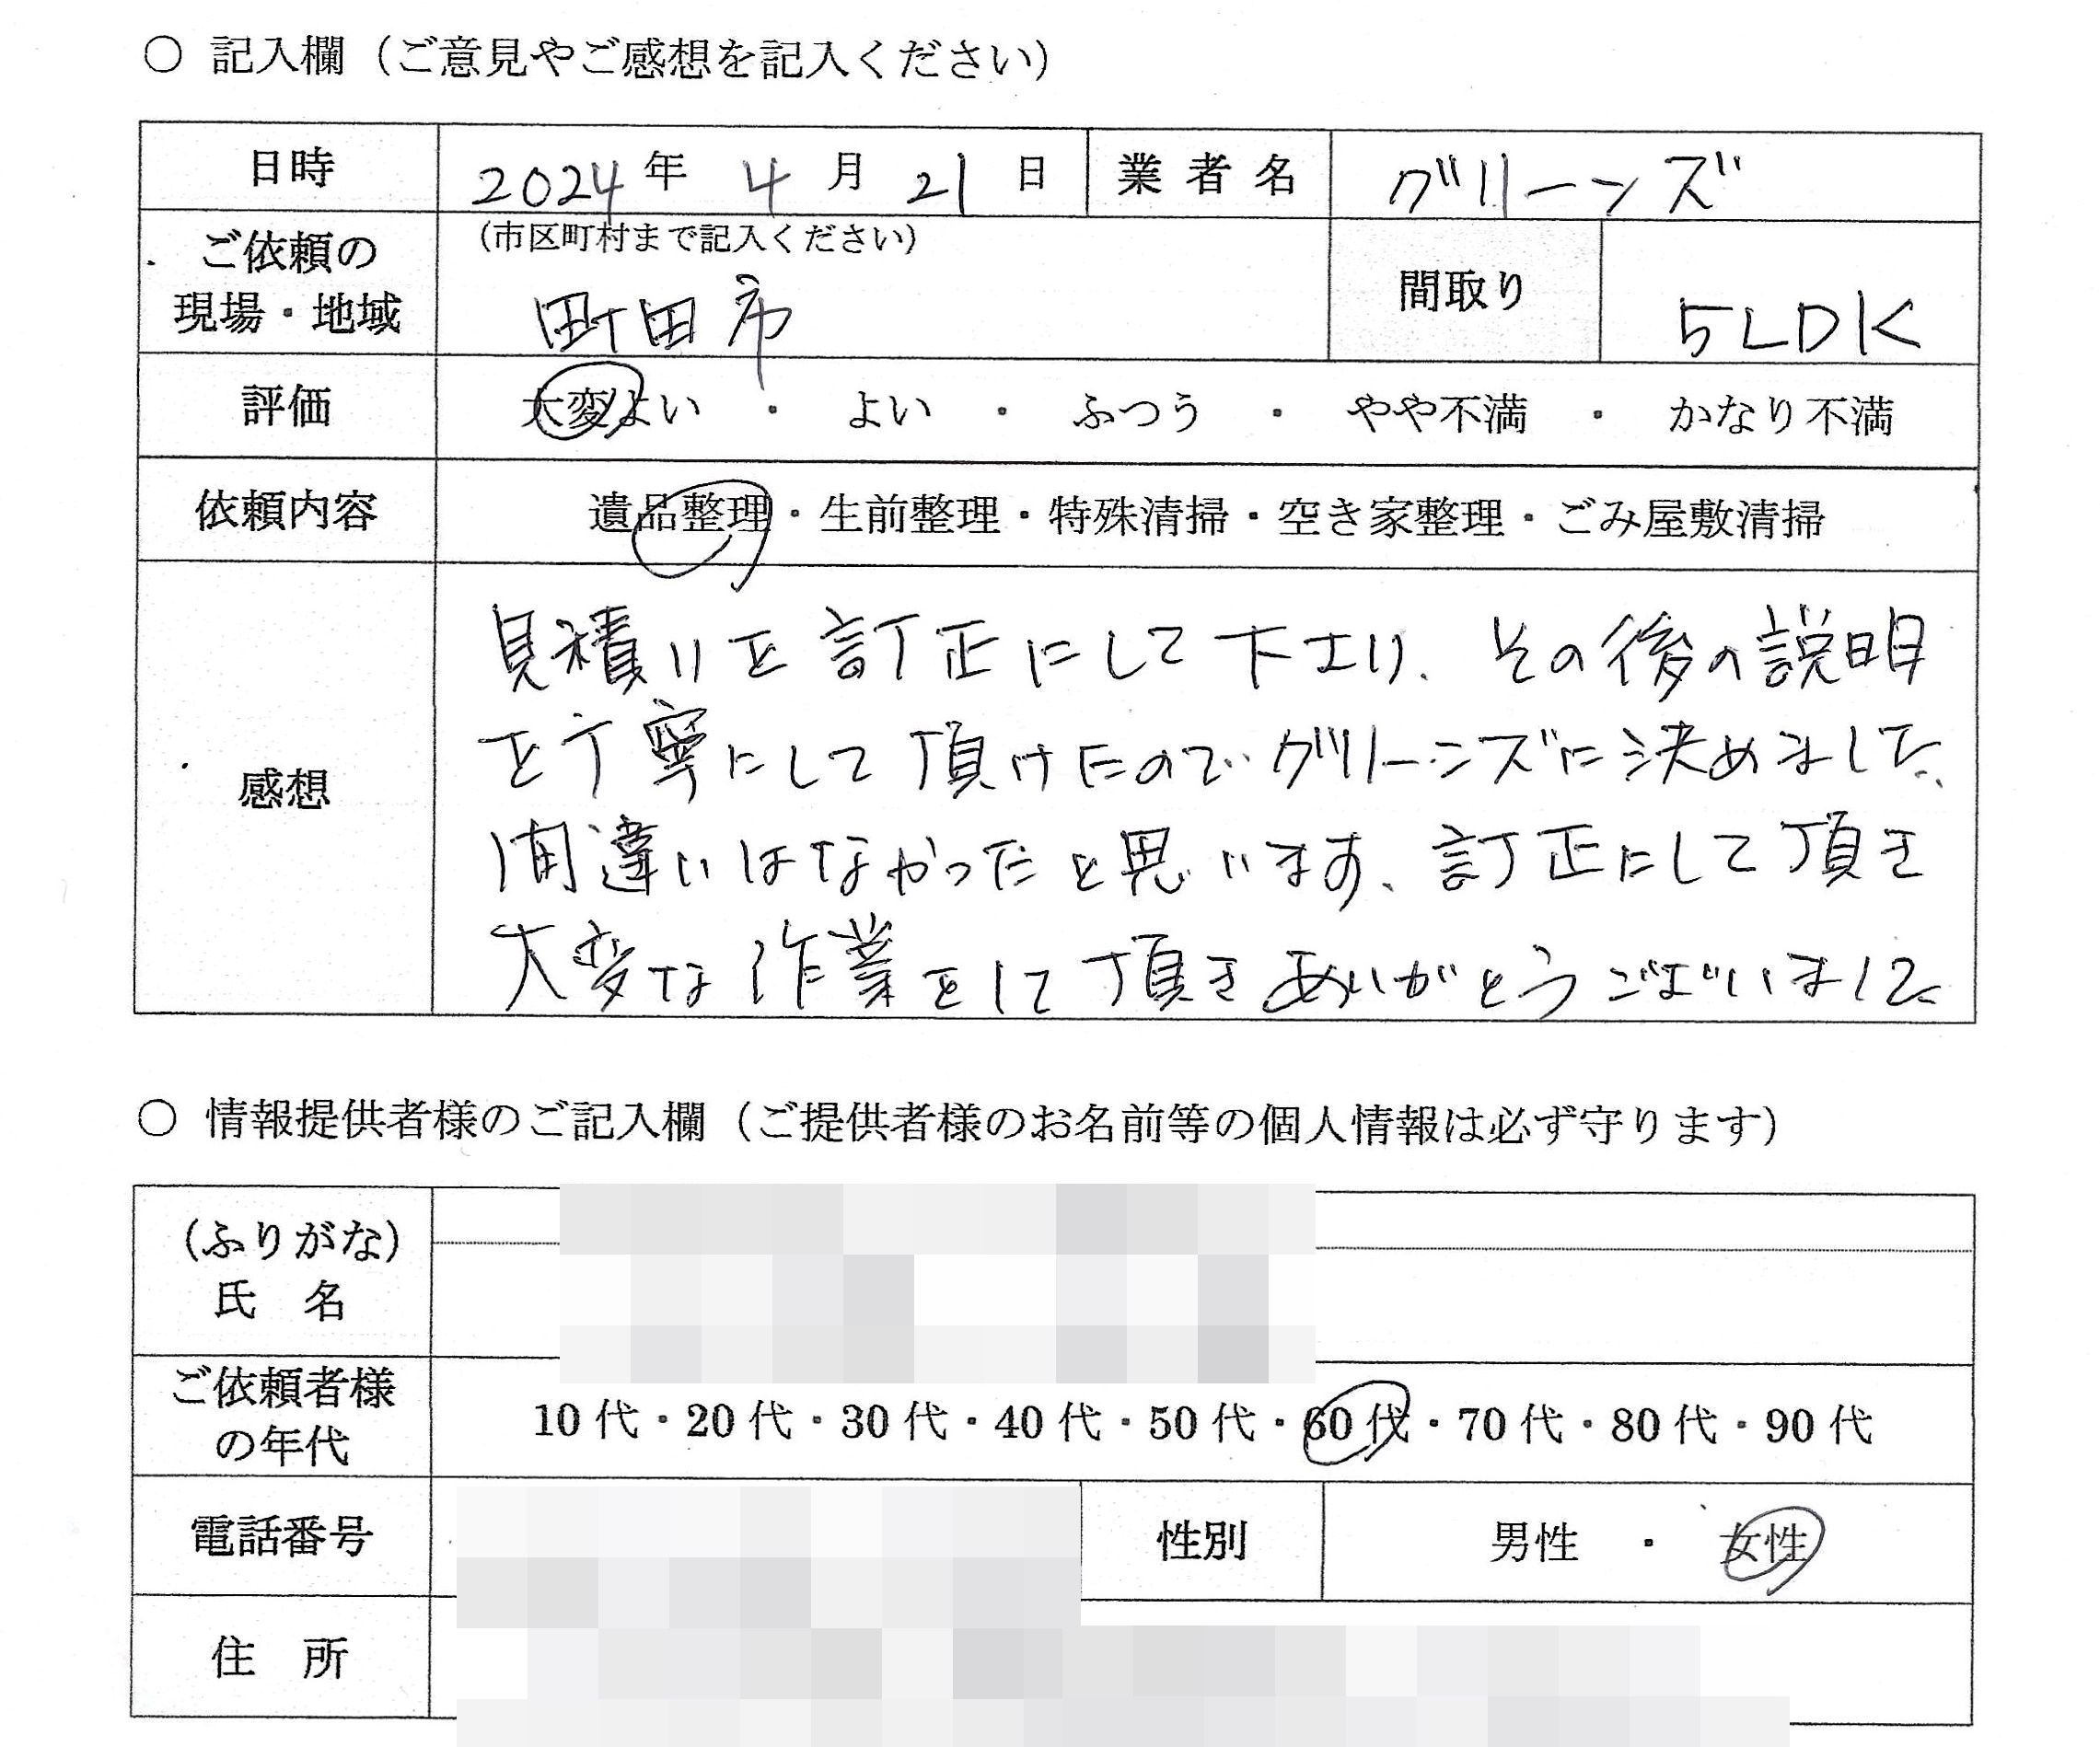 ○ 記入欄（ご意見やご感想を記入ください）
日時 2024年 4月 21日 業者名 グリーンズ
ご依頼の現場・地域 （市区町村まで記入ください） 町田市 間取り 5LDK
評価 大変よい ・ よい ・ ふつう ・ やや不満 ・ かなり不満
依頼内容 遺品整理・生前整理・特殊清掃・空き家整理・ごみ屋敷清掃
感想
見積りを訂正にして下さり、その後の説明
を丁寧にして頂けたのでグリーンズに決めました、
間違いはなかったと思います、訂正にして頂き
大変な作業をして頂きありがとうございました
○ 情報提供者様のご記入欄（ご提供者様のお名前等の個人情報は必ず守ります）
（ふりがな）
氏　名
ご依頼者様の年代 10代・20代・30代・40代・50代・60代・70代・80代・90代
電話番号 性別 男性 ・ 女性
住　所